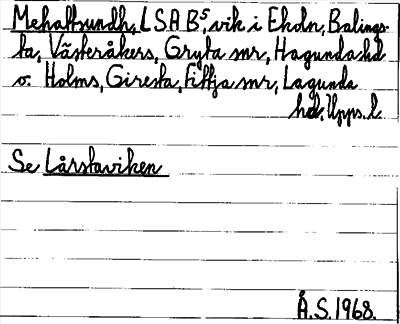 Mehaltsundh, L S A B⁵, vik i Ekoln, Balings-
ta, Västeråkers, Gryta snr, Hagunda hd
o. Holms, Giresta, Fittja snr, Lagunda
hd, Upps. l.
Se Lårstaviken
Å.S. 1968.